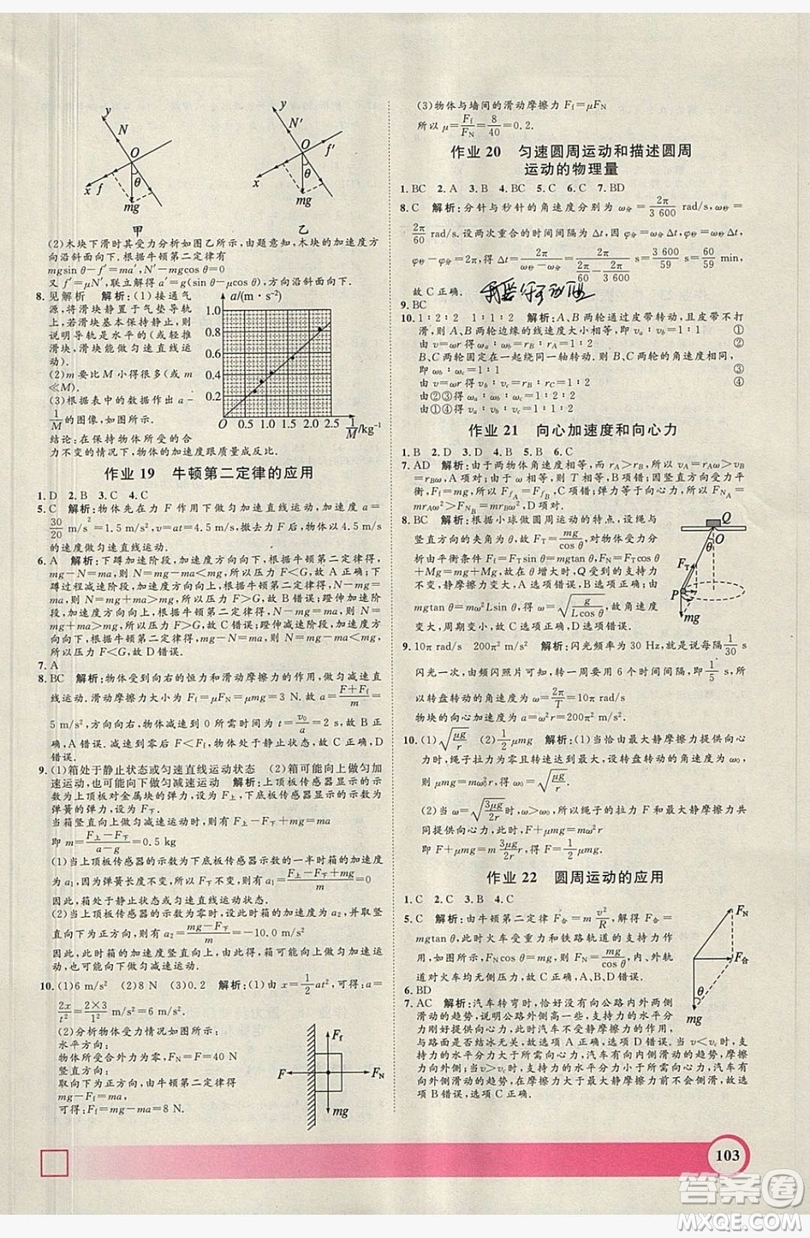 y
N
O
f
x
θ
mg
甲
y
N′
O
f′
x
θ
mg
乙
(2)木块下滑时其受力分析如图乙所示,由题意知,木块的加速度方
向沿斜面向下.根据牛顿第二定律有
mgsin θ－f′=ma′,解得 a′=gsin θ－μgcos θ,方向沿斜面向下.
8. 见解析　解析:(1)接通气
源,将滑块静置于气垫导轨上,
滑块基本保持静止,则
说明导轨是水平的(或轻推
滑块,滑块能做匀速直线运
动).
(2)m 要比 M 小很多(或 m
≪M).
(3)根据表中的数据作出 a－
1/M 的图像,如图所示.
结论:在保持物体所受的合
力不变的情况下,物体的加速度与质量成反比.
a/(m·s⁻²)
1.0
0.8
0.6
0.4
0.2
0 0.5 1.0 1.5 2.0 2.5
1/M /kg⁻¹
作业 19　牛顿第二定律的应用
1. D　2. B　3. C　4. C
5. C　解析:物体先在力 F 作用下做匀加速直线运动,加速度 a=
30/20 m/s²=1.5 m/s²,v=at=4.5 m/s,撤去力 F 后,物体以 4.5 m/s
的速度做匀速直线运动.
6. A　解析:下蹲加速阶段,加速度方向向下,根据牛顿第二定律得,
mg－N=ma,N=mg－ma<mg,所以压力 F<G,故 A 正确;下
蹲过程减速阶段,加速度方向向上,根据牛顿第二定律得,N－mg
=ma,N=mg+ma>mg,所以压力 F>G,故 B 错误;蹬伸加速阶
段,加速度方向向上,根据牛顿第二定律得,N－mg=ma,N=mg
+ma>mg,所以压力 F>G,故 C 错误;蹬伸减速阶段,加速度方
向向下,根据牛顿第二定律得,mg－N=ma,N=mg－ma<mg,
所以压力 F<G,故 D 错误.
7. A
8. BC　解析:物体受到向右的恒力和滑动摩擦力的作用,做匀减速直
线运动.滑动摩擦力大小为 Ff=μFN=μmg=3 N.故 a=(F+Ff)/m=
5 m/s²,方向向右,物体减速到 0 所需的时间 t=v₀/a=2 s,B 正
确,A 错误.减速到零后,F<Ff,物体处于静止状态,故 C 正确,D
错误.
9. (1)箱处于静止状态或匀速直线运动状态　(2)箱可能向上做匀加
速运动,也可能向下做匀减速运动　解析:设金属块的质量为
m,顶板传感器对金属块的弹力,设为 F上,底板传感器示数等于
弹簧的弹力,设为 F下.
当箱竖直向上做匀减速运动时,有 mg+F上－F下=ma
即 m=(F上－F下)/(a－g)=0.5 kg
(1)当上顶板传感器的示数为下底板传感器示数的一半时箱的加速度
为 a₁,因为弹簧长度不变,所以 F下不变,则 a₁=(mg+F上－F下)/m=
0,故箱处于静止或匀速直线运动状态.
(2)当上顶板传感器的示数为零时,设箱的加速度为 a₂,并取竖
直向下为正方向,则 a₂=(mg－F下)/m=－10.0 m/s²
由此可知,此时箱的加速度竖直向上,故箱可能向上做匀加速运
动,也可能向下做匀减速运动.
10. (1)6 m/s²　(2)8 N　(3)0.2　解析:(1)由 x=½at²,可得:a=
2x/t²=(2×3)/1² m/s²=6 m/s².
(2)分析物体受力情况如图所示:
水平方向:
物体所受合外力为零,FN=F=40 N
竖直方向:
取向下为正方向,由牛顿第二定律得:
mg－Ff=ma
可得:Ff=mg－ma=8 N.
Ff
F
FN
mg
(3)物体与墙间的滑动摩擦力 Ff=μFN
所以 μ=Ff/FN=8/40=0.2.
作业 20　匀速圆周运动和描述圆周
运动的物理量
1. BC　2. A　3. B　4. C　5. C　6. C　7. BD
8. C　解析:分针与秒针的角速度分别为 ω分=2π/3 600 rad/s,ω秒=
2π/60 rad/s.设两次重合的时间间隔为 Δt,因 φ分=ω分Δt,φ秒=
ω秒Δt,φ秒－φ分=2π,得 Δt=2π/(ω秒－ω分)=2π/(2π/60－2π/3 600) s=3 600/59 s=60/59 min,
故 C 正确.
9. BC
10. 1∶2∶2　1∶1∶2　解析:A、B 两轮通过皮带带动,且皮带不打
滑,则 A、B 两轮边缘的线速度大小相等,即 vₐ∶v_b=1∶1　①
由 v=ωr 得 ωₐ∶ω_b=r_B∶r_A=1∶2　②
B、C 两轮固定在一起同一轴转动,则 B、C 两轮的角速度相等,
即 ω_b∶ω_c=1∶1　③
由 v=ωr 得 v_b∶v_c=r_B∶r_C=1∶2　④
由②③得 ωₐ∶ω_b∶ω_c=1∶2∶2
由①④得 vₐ∶v_b∶v_c=1∶1∶2
作业 21　向心加速度和向心力
1. B　2. D　3. C　4. C　5. B　6. D
7. AD　解析:由于两物体角速度相等,而 r_A>r_B,所以 v_A=r_Aω>
v_B=r_Bω,A 项对;由于 ω 相等,则 T 相等,B 项错;因竖直方向受力平
衡,Ff=mg,所以 FfA=FfB,C 项错;弹力等于向心力,所以 FNA=
mr_Aω²>FNB=mr_Bω²,D 项对.
8. BC　解析:根据小球做圆周运动的特点,设绳与
竖直方向的夹角为 θ,故 FT=mg/cos θ,对物体受力
分析由平衡条件 Ff=FTsin θ=mgtan θ,FN=FTcos θ
+Mg=mg+Mg,故在 θ 增大时,Q 受到的支持力不变,
静摩擦力变大,A 选项错误,B 选项正确;由
mgtan θ=mω²Lsin θ,得 ω=√(g/(Lcos θ)),故角速度
变大,周期变小,故 C 选项正确,D 选项错误.
Q
θ
FT
P
mg
9. 10π rad/s　200π² m/s²　解析:频闪光频率为 30 Hz,就是说每隔 1/30 s
闪光一次,由频闪照片可知,转一周要用 6 个时间间隔,即 1/5 s,
所以转盘转动的角速度为 ω=2π/T=10π rad/s
物块的向心加速度为 a=ω²r=200π² m/s².
10. (1)√(μg/r)　(2)½μmg　解析:(1)当恰由最大静摩擦力提供向心
力时,绳子拉力为零且转速达到最大,设转盘转动的角速度为
ω₀,则 μmg=mω₀²r,得 ω₀=√(μg/r).
(2)当 ω=√(3μg/2r)时,ω>ω₀,所以绳子的拉力 F 和最大静摩擦力共
同提供向心力,此时,F+μmg=mω²r,得 F=½μmg.
作业 22　圆周运动的应用
1. C　2. C　3. C　4. C
5. C　解析:由牛顿第二定律 F合=m v²/R,解得 F合=
mgtan θ,此时火车受重力和铁路轨道的支持力作
用,如图所示,FNcos θ=mg,则 FN=mg/cos θ,内、外轨
道对火车均无侧压力,故 C 正确,A、B、D 错误.
FN
F合
mg
6. BD
7. AC　解析:汽车转弯时,恰好没有向公路内外两侧
滑动的趋势,说明公路外侧高一些,支持力的水平
分力刚好提供向心力,此时汽车不受静摩擦力的作用,
与路面是否结冰无关,故 A 正确,D 错误.
当 v<v_c 时,支持力的水平分力大于所需向心力,汽车有向内侧滑动的趋势,摩擦力向外侧;
当 v>v_c 时,支持力的水平分力小于所需向心力,汽车有向外侧滑动的趋势,
在摩擦力大于最大静摩擦力前不会侧滑,故 B 选项
错误,C 正确.
103
答案圈
MXQE.COM